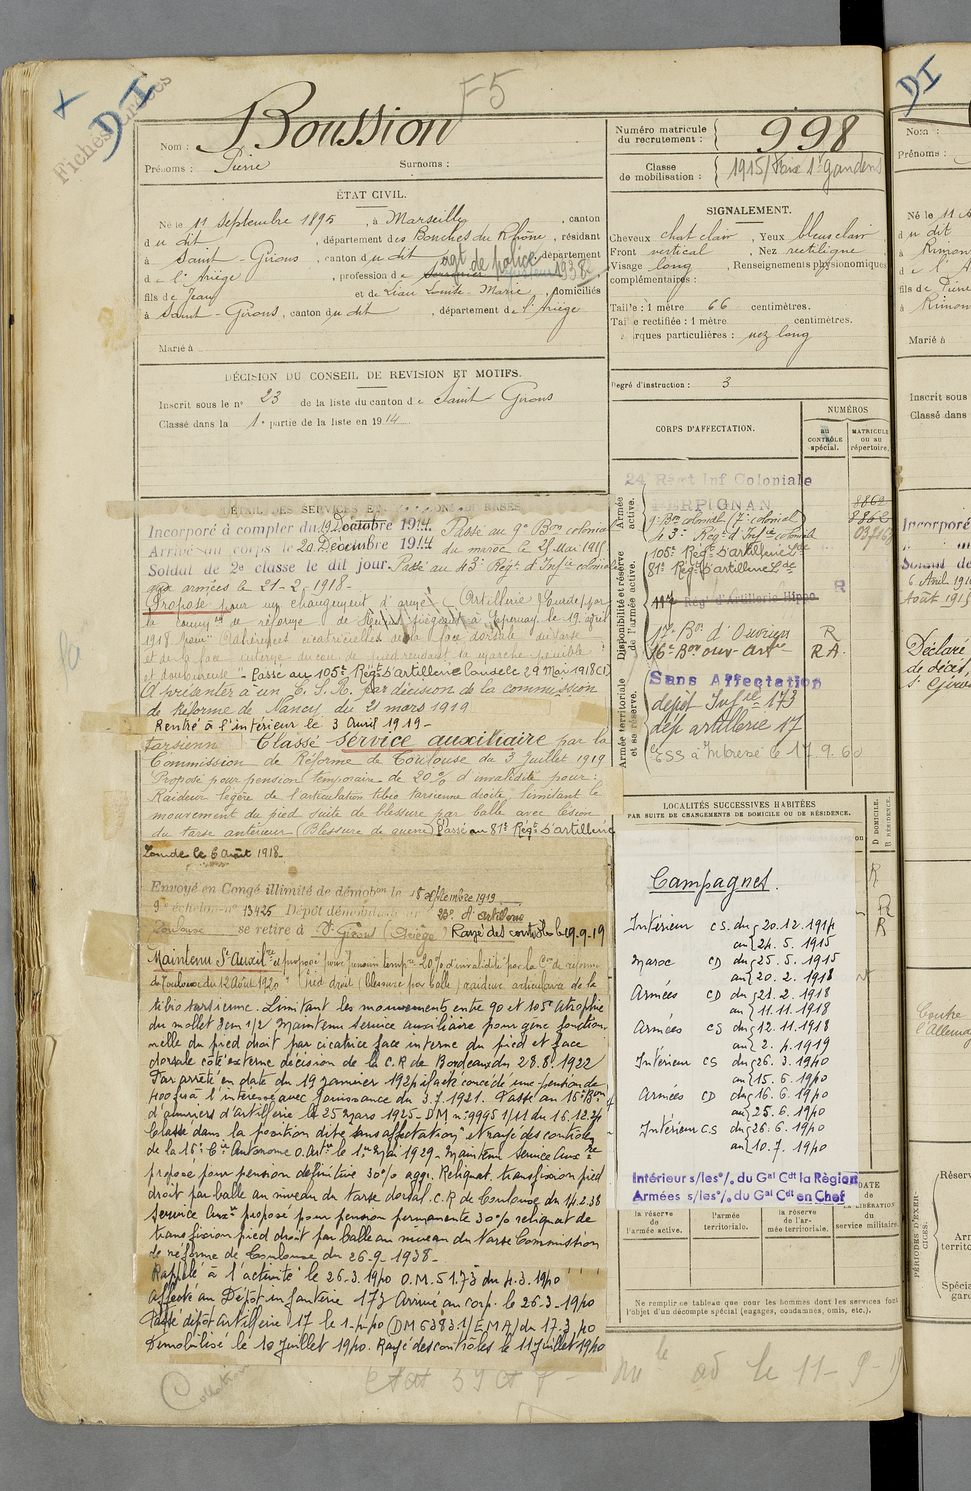 F5
D I
Fiches
Nom : Boussion
Prénoms : Pierre Surnoms :
Numéro matricule du recrutement : 998
Classe de mobilisation : 1915
ÉTAT CIVIL.
Né le 11 Septembre 1895, à Marseille, canton
du dit, département des Bouches du Rhône, résidant
à Saint-Girons, canton du dit, département
agt de police
d e l'Ariège, profession de 1938
fils de Jean et de Liau Louise-Marie, domiciliés
à Saint-Girons, canton du dit, département de l'Ariège
Marié à
SIGNALEMENT.
Cheveux chat clair, Yeux bleus clair
Front vertical, Nez rectiligne
Visage long, Renseignements physionomiques
complémentaires :
Taille : 1 mètre 66 centimètres.
Taille rectifiée : 1 mètre centimètres.
Marques particulières : nez long
Degré d'instruction : 3
DÉCISION DU CONSEIL DE REVISION ET MOTIFS.
Inscrit sous le n° 23 de la liste du canton de Saint-Girons
Classé dans la 1e partie de la liste en 1914
CORPS D'AFFECTATION.
NUMÉROS
au CONTRÔLE spécial.
MATRICULE ou au répertoire.
Armée active.
24 Regt Inf Coloniale
PERPIGNAN
9e Bon colonial (7e colonial)
43e Regt d'Infie coloniale
8862
Disponibilité et réserve de l'armée active.
105e Régt d'artillerie Lde
81e Regt d'artillerie Lde
Regt d'Artillerie Hippo R
17e Bon d'Ouvriers R
16e Bon ouv. Artie R A.
Armée territoriale et sa réserve.
Sans Affectation
dépôt Infie 173
dép artillerie 17
ESS à Intéressé le 17.9.60
DÉTAIL DES SERVICES ET
Incorporé à compter du 19 Décembre 1914. Passé au 9e Bon colonial
Arrivé au corps le 20 Décembre 1914 du maroc le 25 Mai 1915
Soldat de 2e classe le dit jour. Passé au 43e Régt d'Infie coloniale
aux armées le 21-2-1918-
Proposé pour un changement d'arme (Artillerie lourde) par
la comon de réforme de siégeant à Epernay le 19 avril
1918 pour "Adhérences cicatricielles de la face dorsale du tarse
et de la face externe du cou de pied rendant la marche pénible
et douloureuse. - Passé au 105e Régt d'Artillerie Lourde le 29 Mai 1918 (1)
A présenter à un C. S. R. par décision de la commission
de Réforme de Nancy du 21 mars 1919
Rentré à l'intérieur le 3 Avril 1919-
tarsienne Classé service auxiliaire par la
Commission de Réforme de Toulouse du 3 Juillet 1919
Proposé pour pension temporaire de 20% d'invalidité pour :
Raideur légère de l'articulation tibio tarsienne droite, limitant le
mouvement du pied suite de blessure par balle avec lésion
du tarse antérieur (Blessure de guerre) Passé au 81e Régt d'artillerie
Lourde le 6 Août 1918-
Envoyé en Congé illimité de démobon le 18 septembre 1919
9e échelon n° 13425 Dépôt démobilisateur 23e d'Artillerie
Toulouse se retire à St Girons (Ariège) Rayé des contrôles le 19-9-19
Maintenu St Auxilre et proposé pour pension tempre 20% d'invalidité par la Con de réforme
de Toulouse du 12 Août 1920 "Pied droit (blessure par balle) raideur articulaire de la
tibio tarsienne. Limitant les mouvements entre 90 et 105° atrophie
du mollet 3cm 1/2 Maintenu service auxiliaire pour gêne fonction-
nelle du pied droit par cicatrice face interne du pied et face
dorsale côté externe décision de la C.R de Bordeaux du 28.8.1922
Par arrêté en date du 19 janvier 1924 il a été concédé une pension de
400 frs à l'intéressé avec jouissance du 3.7.1921. Passé au 16e Bon
d'ouvriers d'artillerie le 25 mars 1925- DM n° 9995 1/11 du 16.12.24
Classé dans la position dite "sans affectation" et rayé des contrôles
de la 16e Cie Autonome O.Artie le 1er Mai 1929- Maintenu service Auxre
proposé pour pension définitive 30% agg. Reliquat transfixion pied
droit par balle au niveau du tarse dorsal. C.R de Toulouse du 14.2.38
Service Auxre proposé pour pension permanente 30% reliquat de
transfixion pied droit par balle au niveau du tarse Commission
de réforme de Toulouse du 26-9-1938-
Rappelé à l'activité le 26-3-1940 O.M. 5173 du 4.3.1940
affecté au Dépôt infanterie 173 Arrivé au corp. le 26-3-1940
Passé dépôt artillerie 17 le 1-4-40 (DM 6383 1/EMA) du 17.3.40
Démobilisé le 10 juillet 1940. Rayé des contrôles le 11 juillet 1940
LOCALITÉS SUCCESSIVES HABITÉES
PAR SUITE DE CHANGEMENTS DE DOMICILE OU DE RÉSIDENCE.
D DOMICILE.
R RÉSIDENCE.
R
R
R
Campagnes.
Intérieur CS. du 20.12.1914
au 24.5.1915
Maroc CD du 25.5.1915
au 20.2.1918
Armées CD du 21.2.1918
au 11.11.1918
Armées CS du 12.11.1918
au 2.4.1919
Intérieur CS du 26.3.1940
au 15.6.1940
Armées CD du 16.6.1940
au 25.6.1940
Intérieur CS du 26.6.1940
au 10.7.1940
Intérieur s/les°/. du Gal Cdt la Région
Armées s/les°/. du Gal Cdt en Chef
la réserve de l'armée active.
l'armée territoriale.
la réserve de l'armée territoriale.
DATE de LIBÉRATION du service militaire.
PÉRIODES D'EXERCICES.
Ne remplir ce tableau que pour les hommes dont les services font
l'objet d'un décompte spécial (engagés, condamnés, omis, etc.).
D I
Nom :
Prénoms :
Né le 11
du dit
à Rimon
de l'A
fils de Pierre
à Rimon
Marié à
Inscrit sous
Classé dans
Incorporé
Soldat de
6 Avril
Août 1915
Déclaré
de décès,
St Giron
Contre
l'Allema
Réserv
Arm
territo
Spécia
gard